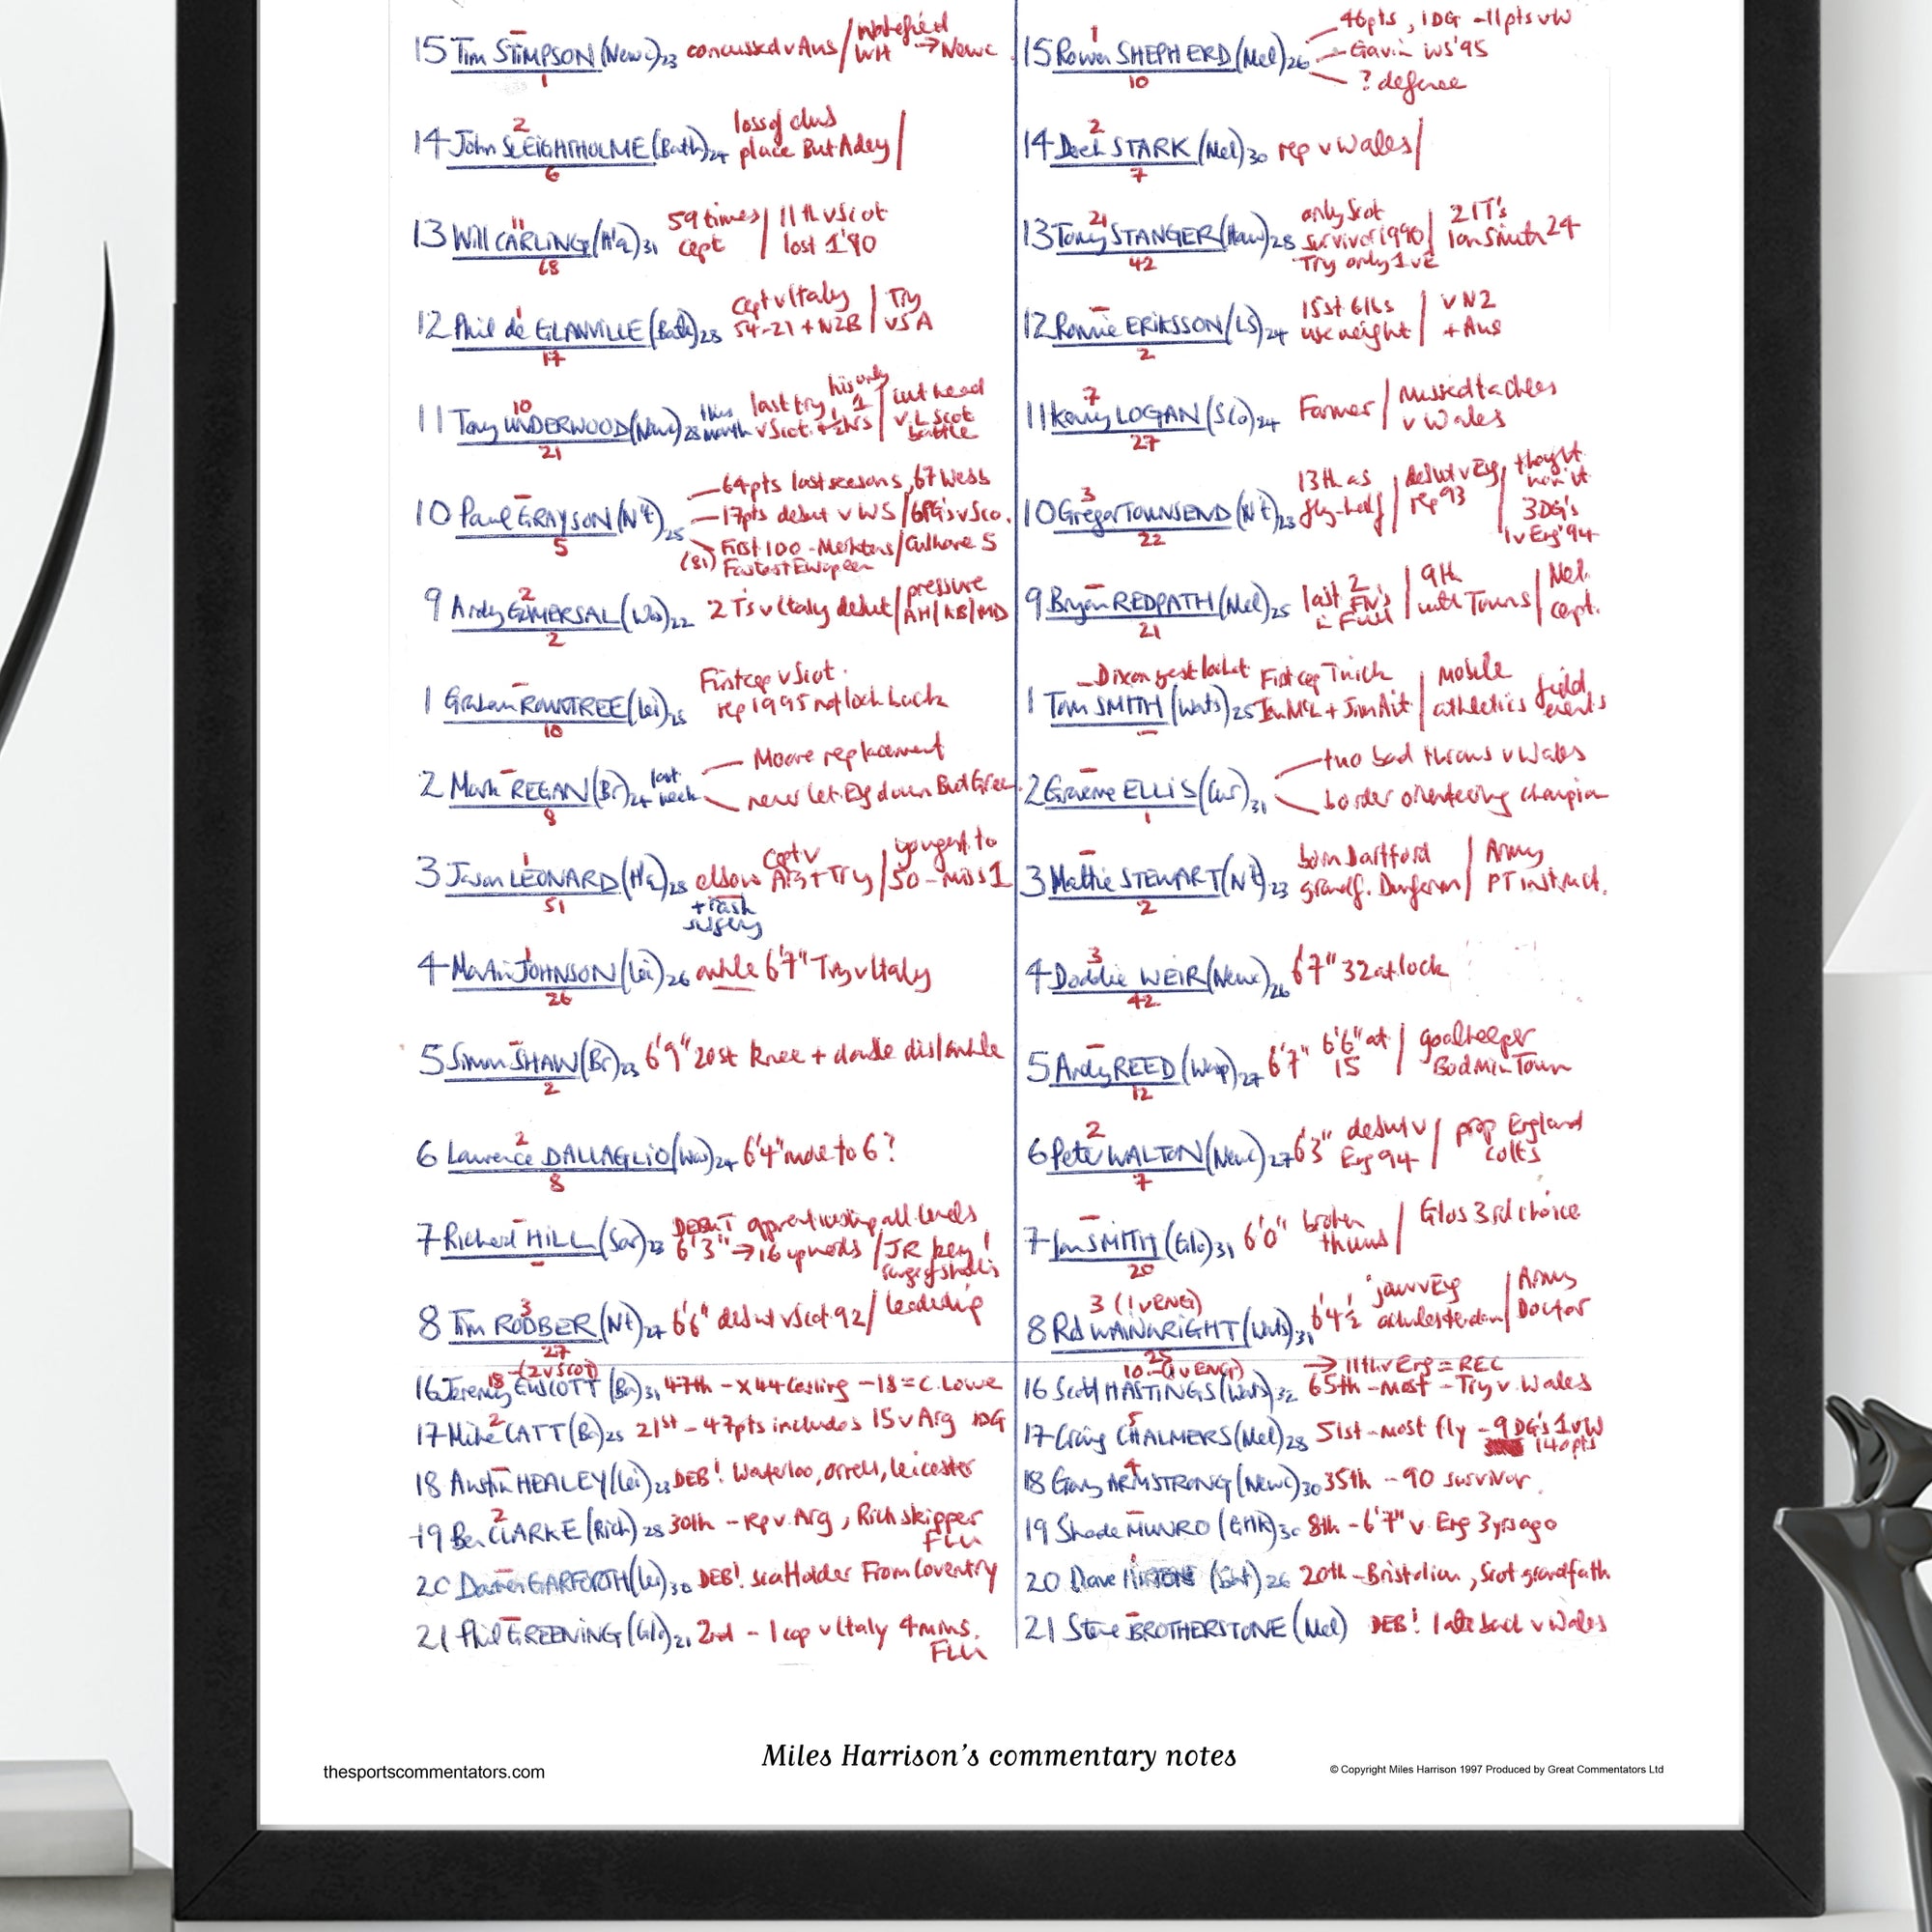 15 Tim STIMPSON (Newc) 23 concussed v Aus / Wakefield WH → Newc
1
14 John SLEIGHTHOLME (Bath) 24 loss of club place But Adey /
2
6
13 Will CARLING (H'q) 31 59 times capt / 11th v Scot lost 1 '90
11
68
12 Phil de GLANVILLE (Bath) 28 capt v Italy 54-21 + NZB / Try v SA
1
17
11 Tony UNDERWOOD (Newc) 28 this month last try, his only 1 v Scot. + 2 hrs / cut head v L Scot battle
10
21
10 Paul GRAYSON (N't) 25
5
64pts last seasons, 67 Webb
17pts debut v WS / 6PG's v Sco.
First 100 - Mehrtens / Culhane 5
(81) Fastest European
9 Andy GOMERSAL (Was) 22 2 T's v Italy debut / pressure AH / KB / MD
2
2
1 Graham ROWNTREE (Lei) 25 First cap v Scot. rep 1995 not look back
10
2 Mark REGAN (Br) 24 last week
8
Moore replacement
never let Eng down But Gree
3 Jason LEONARD (H'q) 28 elbow Capt v Arg + Try / youngest to 50 - miss 1
1
51
+ rash surgery
4 Martin JOHNSON (Lei) 26 ankle 6'7" Try v Italy
1
26
5 Simon SHAW (Br) 23 6'9" 20st knee + double dis/ankle
2
6 Lawrence DALLAGLIO (Was) 24 6'4" move to 6?
2
8
7 Richard HILL (Sar) 23 DEBUT apprenticeship all levels 6'3" → 16 upwards / JR key!
8 Tim RODBER (Nt) 27 6'6" debut v Scot 92 / leadership
3
27
18 - (2 v SCOT)
16 Jeremy GUSCOTT (Ba) 31 47th - x44 Carling - 18 = C. Lowe
2
17 Mike CATT (Ba) 25 21st - 47pts includes 15 v Arg 1DG
18 Austin HEALEY (Lei) 23 DEB! Waterloo, Orrell, Leicester
2
19 Ben CLARKE (Rich) 28 30th - Rep v. Arg, Rich skipper FLU
20 Darren GARFORTH (Lei) 30 DEB! scaffolder From Coventry
21 Phil GREENING (Glo) 21 2nd - 1 cap v Italy 4 mins. FLU
15 Rowen SHEPHERD (Mel) 26
1
10
46pts, 1DG - 11pts v W
Gavin WS '95
? defence
14 Derek STARK (Mel) 30 rep v Wales /
2
7
13 Tony STANGER (Haw) 28 only Scot survivor 1990 / 21T's Ian Smith 24
21
42
Try only 1 v E
12 Ronnie ERIKSSON (LS) 24 15st 6lbs use weight / v NZ + Aus
2
11 Kenny LOGAN (Sco) 24 Farmer / Missed tackles v Wales
7
27
10 Gregor TOWNSEND (N't) 23 13th as fly-half / debut v Eng rep 93 / thought won it 3DG's 1 v Eng '94
3
22
9 Bryan REDPATH (Mel) 25 last 2 FN's in Full / 9th with Towns / Mel. capt.
21
1 Tom SMITH (Wats) 25 First cap Twick / Mobile athletics field events
2 Graeme ELLIS (Cur) 31
1
two bad throws v Wales
border orienteering champion
3 Mattie STEWART (N't) 23 born Dartford grandf. Dunferm / Army PT instruct.
2
4 Doddie WEIR (Newc) 26 6'7" 32 at lock
3
42
5 Andy REED (Wasp) 27 6'7" 6'6" at 15 / goalkeeper Bodmin Town
12
6 Peter WALTON (Newc) 27 6'3" debut v Eng 94 / prop England Colts
2
7
7 Ian SMITH (Glo) 31 6'0" broken thumb / Glos 3rd choice
20
3 (1 v ENG)
8 Rob WAINWRIGHT (Wats) 31 6'4½ jaw v Eng achilles tendon / Army Doctor
25
10 - (1 v ENG) → 11th v Eng = REC
16 Scott HASTINGS (Wats) 32 65th - Most - Try v. Wales
5
17 Craig CHALMERS (Mel) 28 51st - most fly - 9 DG's 1 v W 140pts
4
18 Gary ARMSTRONG (Newc) 30 35th - 90 survivor.
19 Shade MUNRO (GHK) 30 8th - 6'7" v. Eng 3 yrs ago
20 Dave HILTON (Bat) 26 20th - Bristolian, Scot grandfath
21 Steve BROTHERSTONE (Mel) DEB! late back v Wales
Miles Harrison's commentary notes
thesportscommentators.com
© Copyright Miles Harrison 1997 Produced by Great Commentators Ltd